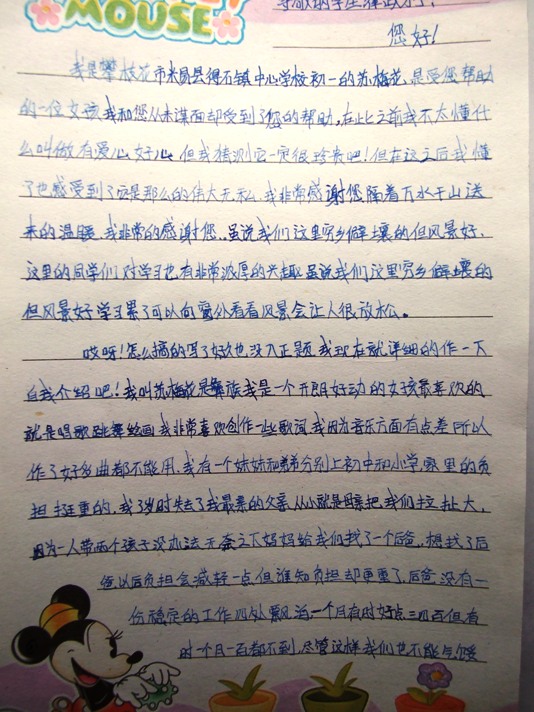 MOUSE
您好！
我是攀枝花市米易县得石镇中心学校初一的苏梅花，是受您帮助
的一位女孩，我和您从未谋面却受到了您的帮助，在此之前我不太懂什
么叫做有爱心、好心，但我猜测它一定很珍贵吧！但在这之后我懂
了也感受到了它是那么的伟大无私，我非常感谢您隔着万水千山送
来的温暖，我非常的感谢您。虽说我们这里穷乡僻壤的但风景好，
这里的同学们对学习也有非常浓厚的兴趣虽说我们这里穷乡僻壤的
但风景好学习累了可以向窗外看看风景会让人很放松。
哎呀！怎么搞的写了好久也没入正题，我现在就详细的作一下
自我介绍吧！我叫苏梅花是彝族我是一个开朗好动的女孩最喜欢的
就是唱歌跳舞绘画，我非常喜欢创作一些歌词，我因为音乐方面有点差所以
作了好多曲都不能用，我有一个妹妹和弟弟分别上初中和小学，家里的负
担挺重的，我7岁时失去了我最亲的父亲从小就是母亲把我们拉扯大，
因为一人带两个孩子没办法无奈之下妈妈给我们找了一个后爸，想找了后
爸以后负担会减轻一点，但谁知负担却更重了，后爸没有一
份稳定的工作四处飘泊，一个月有时好点三四百但有
时一个月一百都不到，尽管这样我们也不能气馁